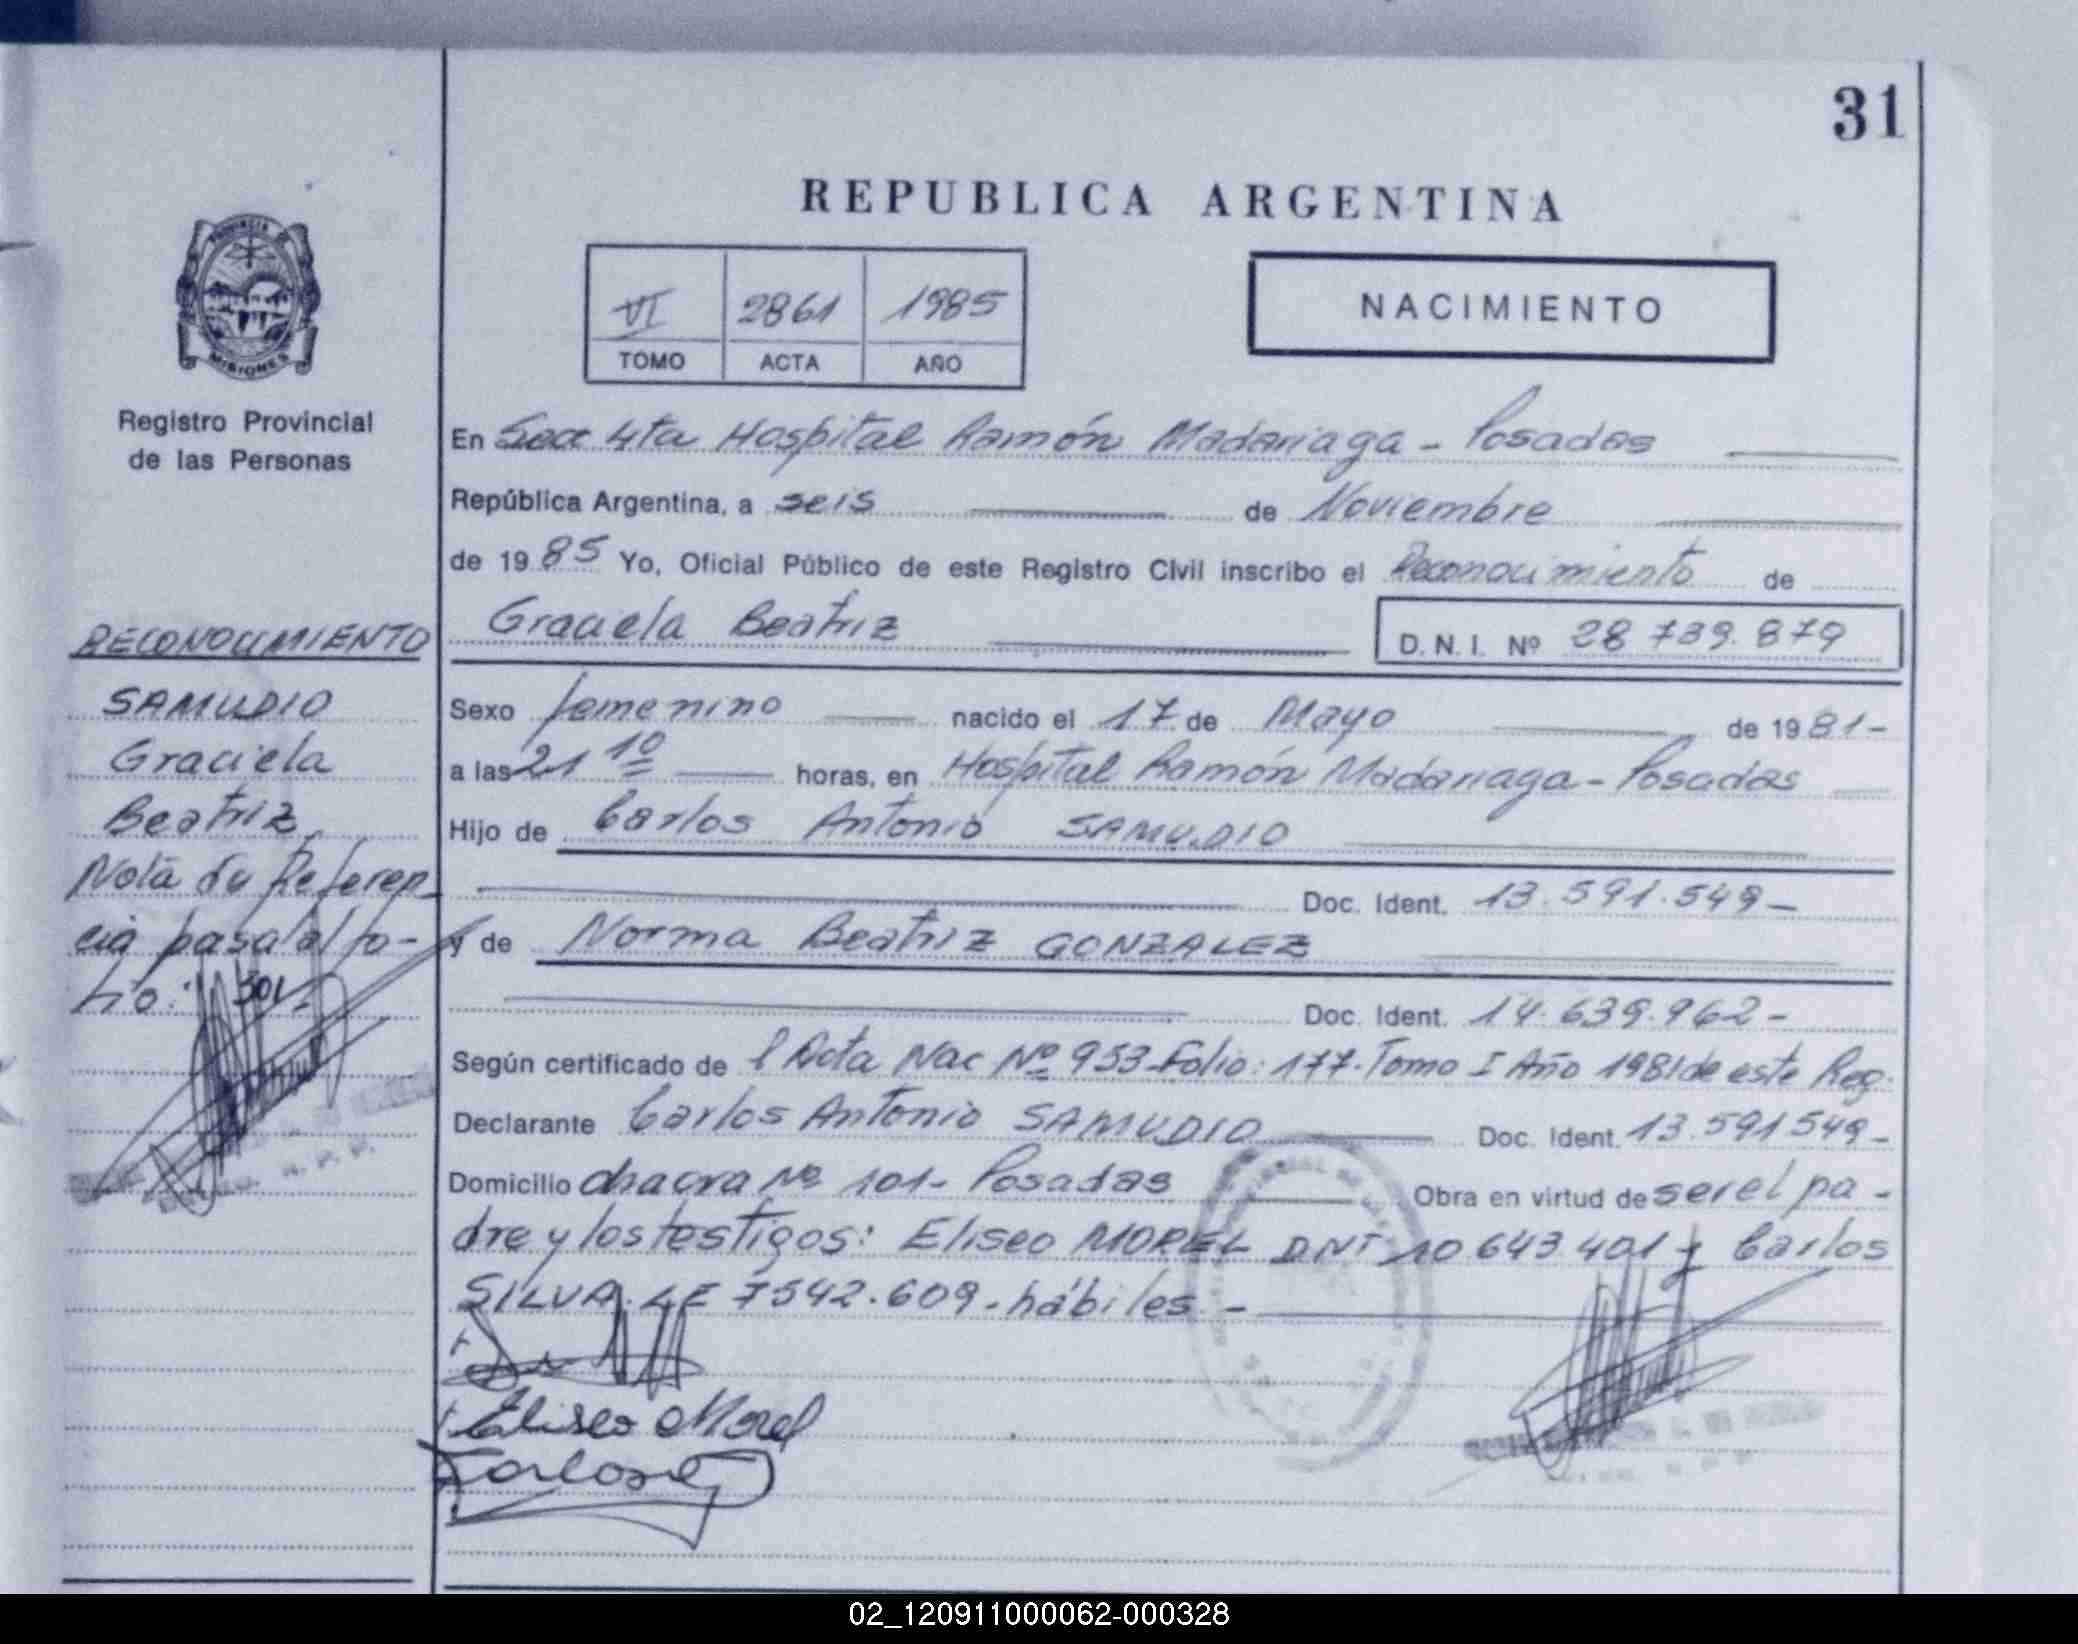 31
REPUBLICA ARGENTINA
VI 2861 1985
TOMO ACTA AÑO
NACIMIENTO
PROVINCIA DE
MISIONES
Registro Provincial
de las Personas
RECONOCIMIENTO
SAMUDIO
Graciela
Beatriz
Nota de Referen-
cia pasa al fo-
lio: 301
En Secc 4ta Hospital Ramón Madariaga - Posadas
República Argentina, a seis de Noviembre
de 1985 Yo, Oficial Público de este Registro Civil inscribo el Reconocimiento de
Graciela Beatriz D.N.I. Nº 28 739.879
Sexo femenino nacido el 17 de Mayo de 1981-
a las 21 10 horas, en Hospital Ramón Madariaga - Posadas
Hijo de Carlos Antonio SAMUDIO
Doc. Ident. 13.591.549-
y de Norma Beatriz GONZALEZ
Doc. Ident. 14.639.962-
Según certificado de l Acta Nac Nº 953-Folio: 177. Tomo I Año 1981 de este Reg.
Declarante Carlos Antonio SAMUDIO Doc. Ident. 13.591549-
Domicilio chacra Nº 101- Posadas Obra en virtud de ser el pa-
dre y los testigos: Eliseo MOREL DNI 10 643 401 y Carlos
SILVA. LE 7542.609.-hábiles.-
Eliseo Morel
02_120911000062-000328